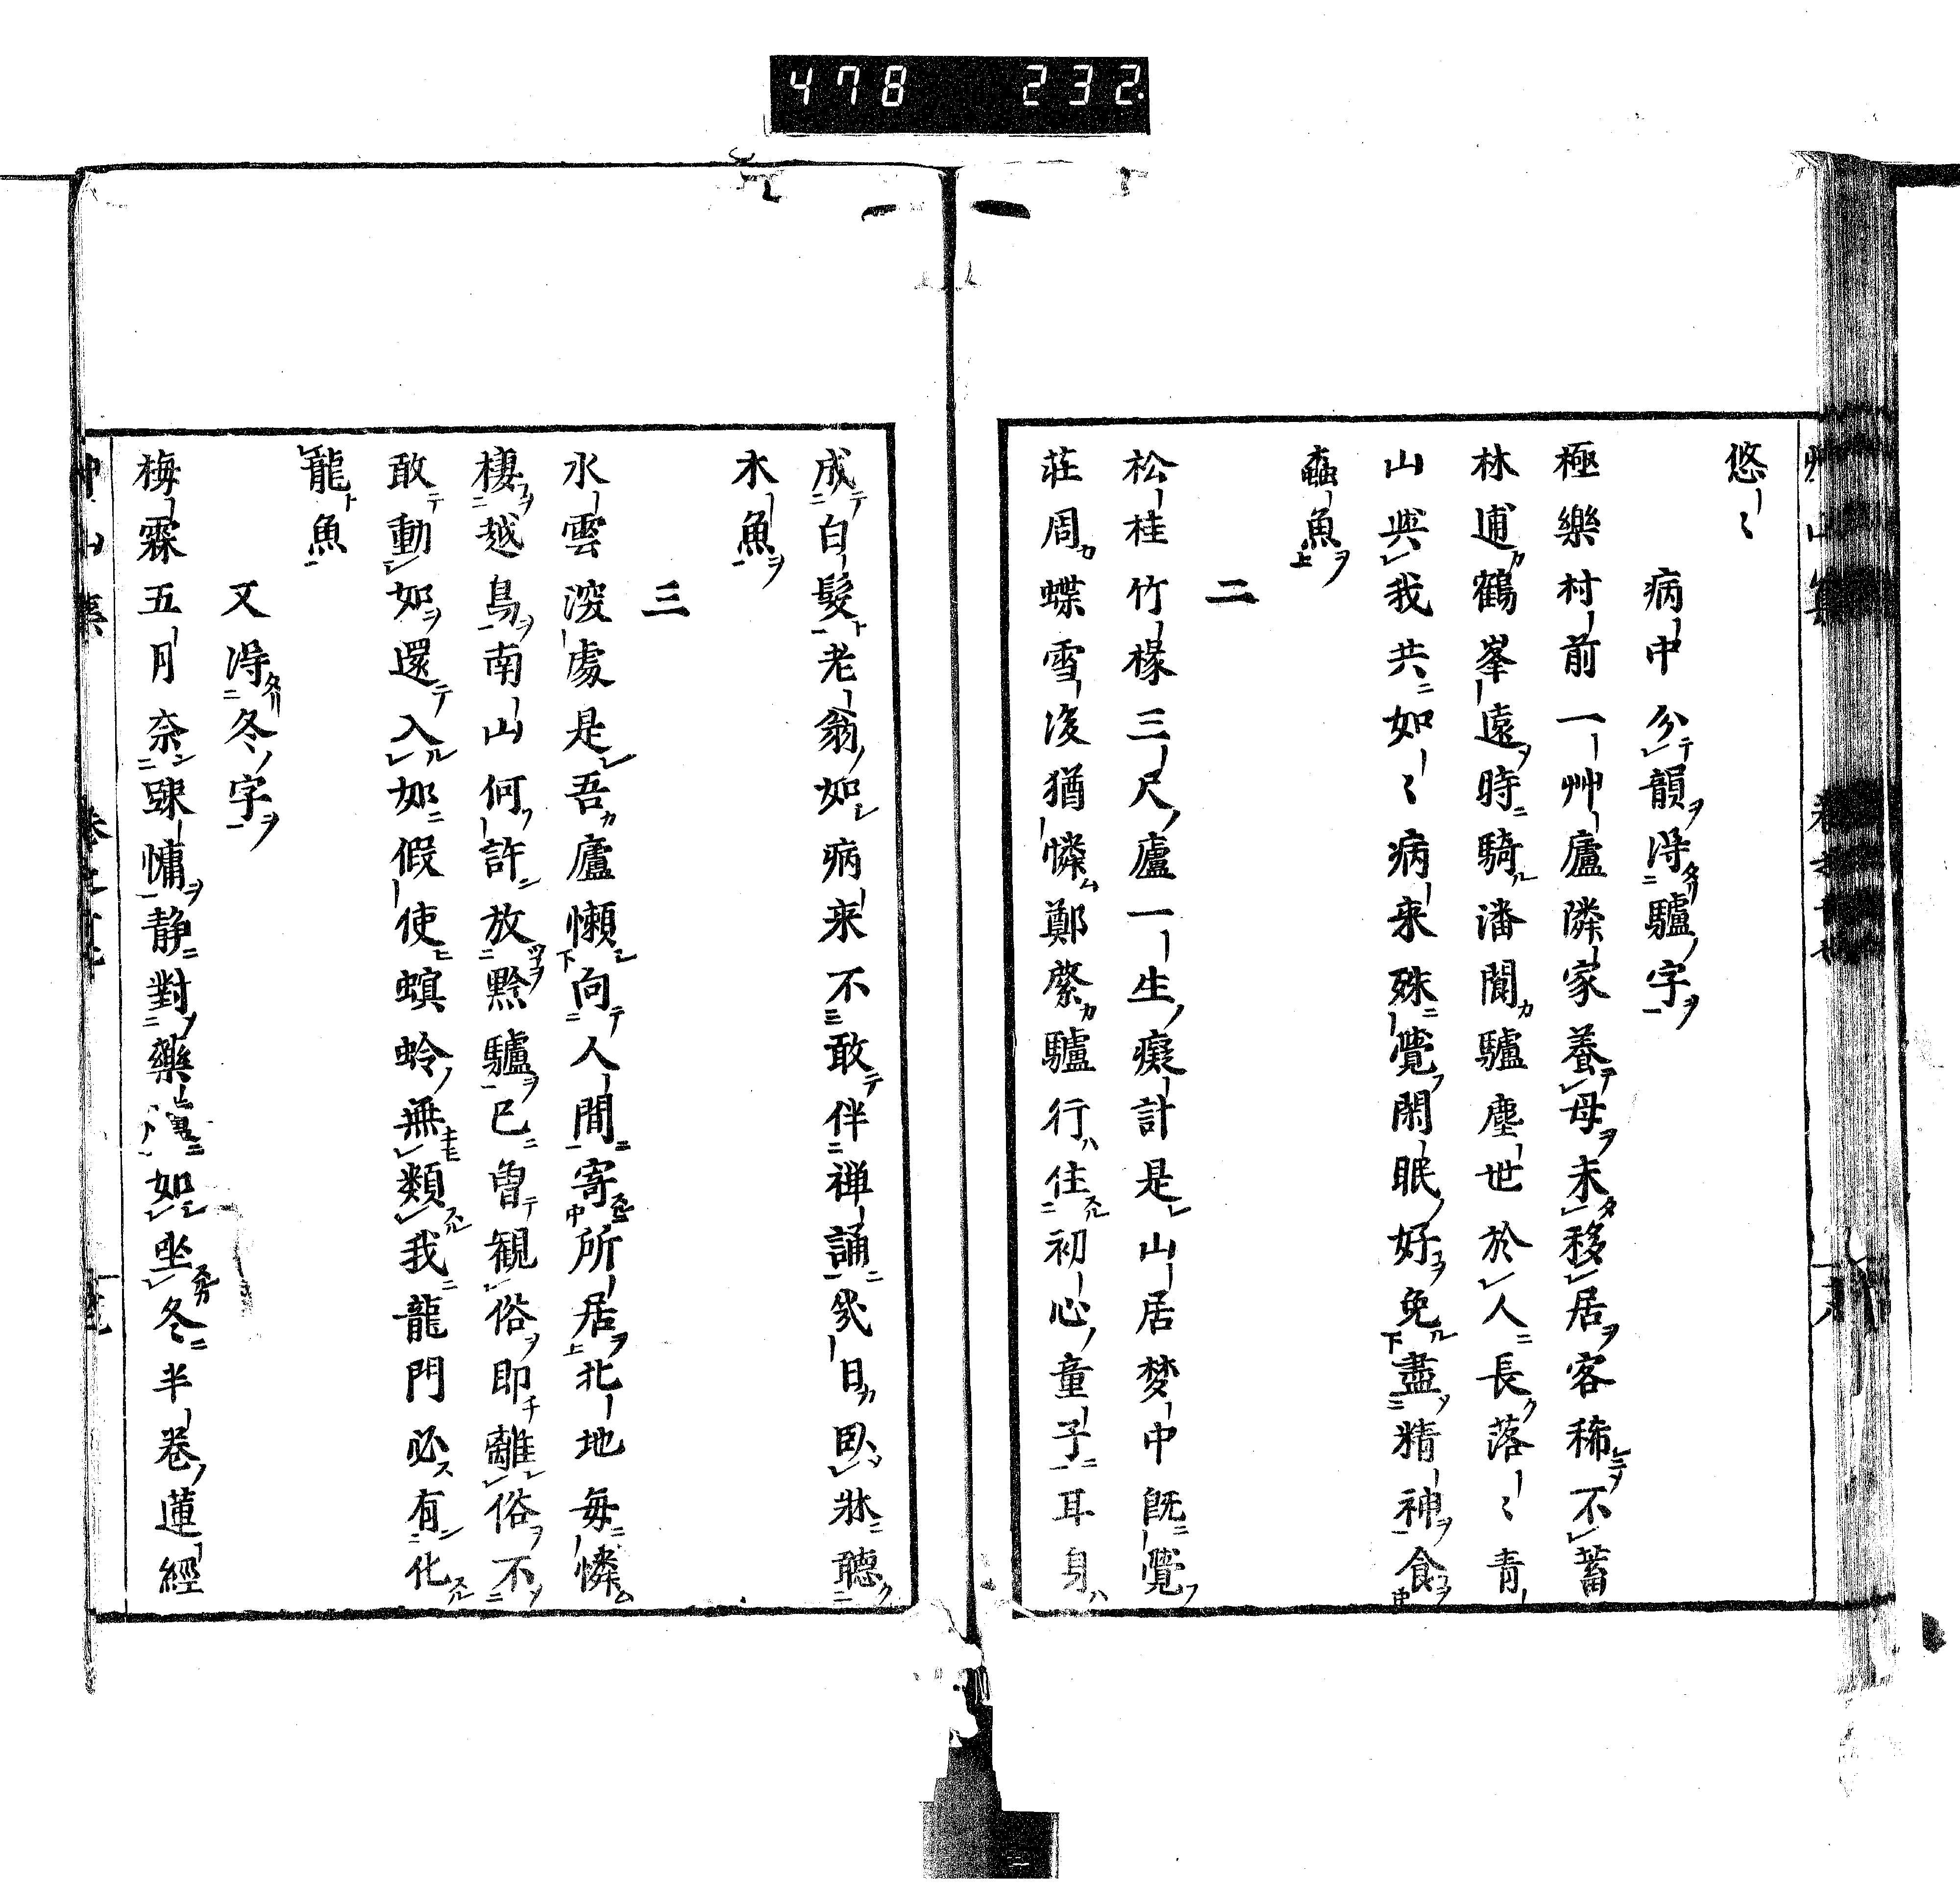 478 232
悠〻
病中分韻得驢字
極樂村前一艸廬隣家養母未移居客稀不蓄
林逋鶴峯遠時騎潘閬驢塵世於人長落〻青
山與我共如〻病来殊覺閑眠好免盡精神食
蠧魚
二
松桂竹椽三尺廬一生癡計是山居梦中既覺
荘周蝶雪後猶憐鄭綮驢行住初心童子耳身
成白髮老翁如病来不敢伴禅誦幾日臥牀聽
木魚
三
水雲深處是吾廬懶向人間寄所居北地每憐
棲越鳥南山何許放黔驢已曽観俗即離俗不
敢動如還入如假使螟蛉無類我龍門必有化
龍魚
又得冬字
梅霖五月奈踈慵静對藥如坐冬半巻蓮經